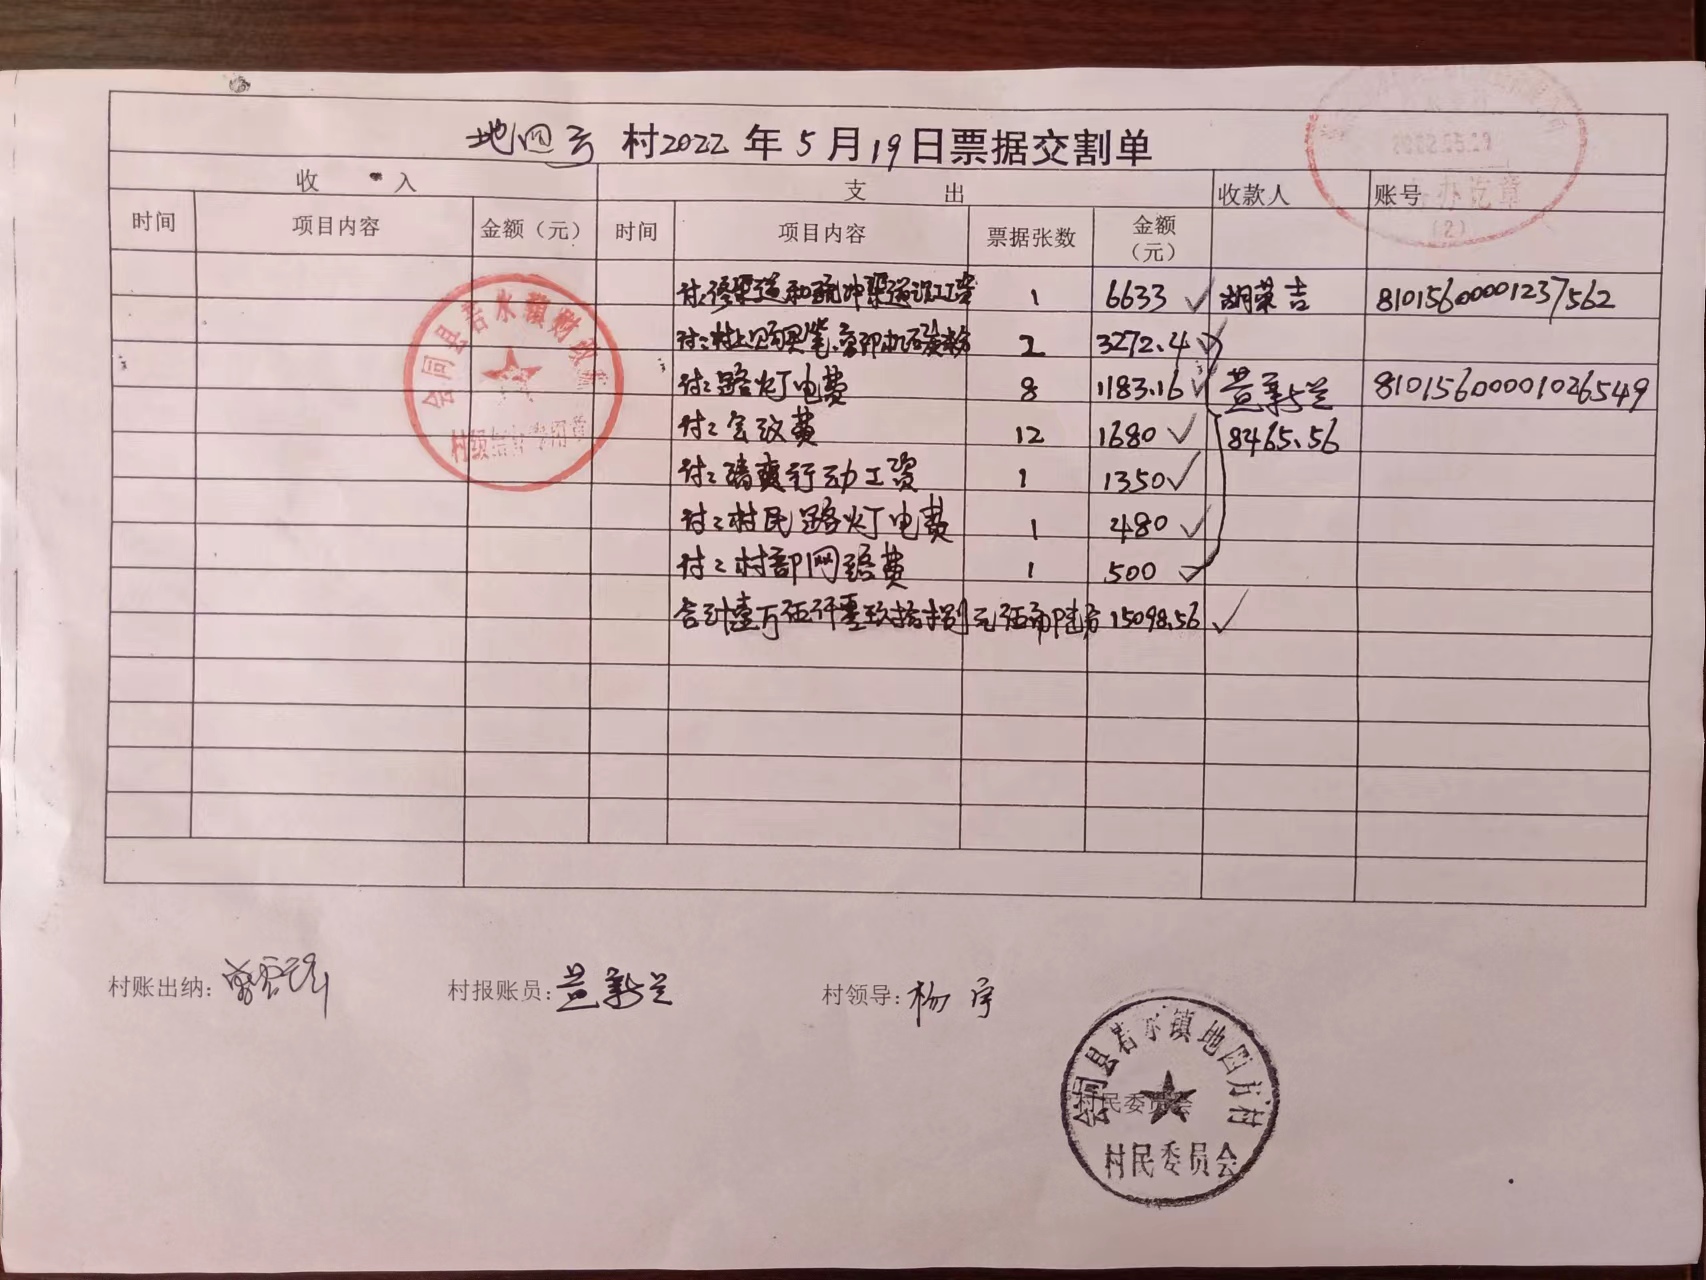 地四方村2022年5月19日票据交割单
收 入 支 出 收款人 账号
时间 项目内容 金额（元） 时间 项目内容 票据张数 金额（元）
付:修渠道和疏冲渠道工资 1 6633 胡荣吉 81015600001237562
付:村上购买笔、复印机碳粉 2 3272.4
付:路灯电费 8 1183.16 黄新兰 81015600001026549
付:会议费 12 1680 8465.56
付:清爽行动工资 1 1350
付:村民路灯电费 1 480
付:村部网络费 1 500
合计壹万伍仟零玖拾捌元伍角陆分 15098.56
会同县若水镇财政所
村级结算专用章
2022.05.19
办讫章
（2）
村账出纳: 村报账员:黄新兰 村领导:杨宇
会同县若水镇地四方村
村民委员会
村民委员会